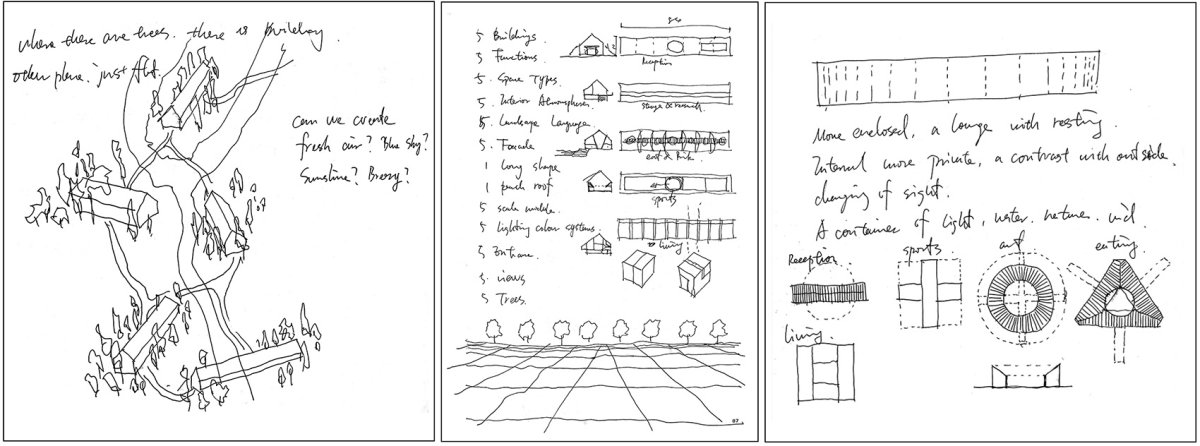 where there are trees. there is building.
other place. just flat.
can we create
fresh air? Blue sky?
Sunshine? Breezy?
5 Buildings.
5 Functions.
5. Space Types.
5. Interior Atmospheres.
5. Landscape Language.
5. Facade
1 long shape
1 roof
5 scale
5 lighting colour systems.
5 Entrance.
5 views
5 Trees.
Reception
eat &
sports
living
More enclosed, a lounge with resting.
Internal more private, a contrast with outside.
changing of sight.
A container of light, water, nature,
Reception
sports
art
eating.
living.